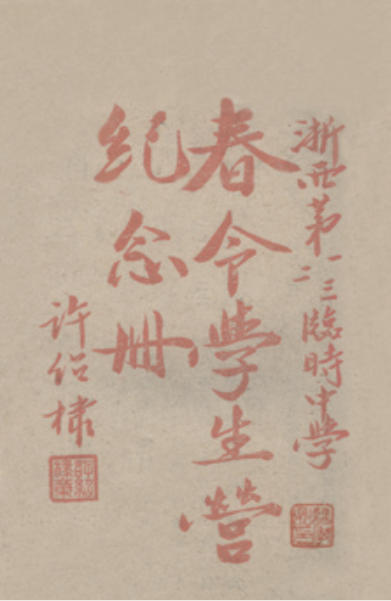 浙西第一二三臨時中学
春令學生营
纪念册
许绍棣